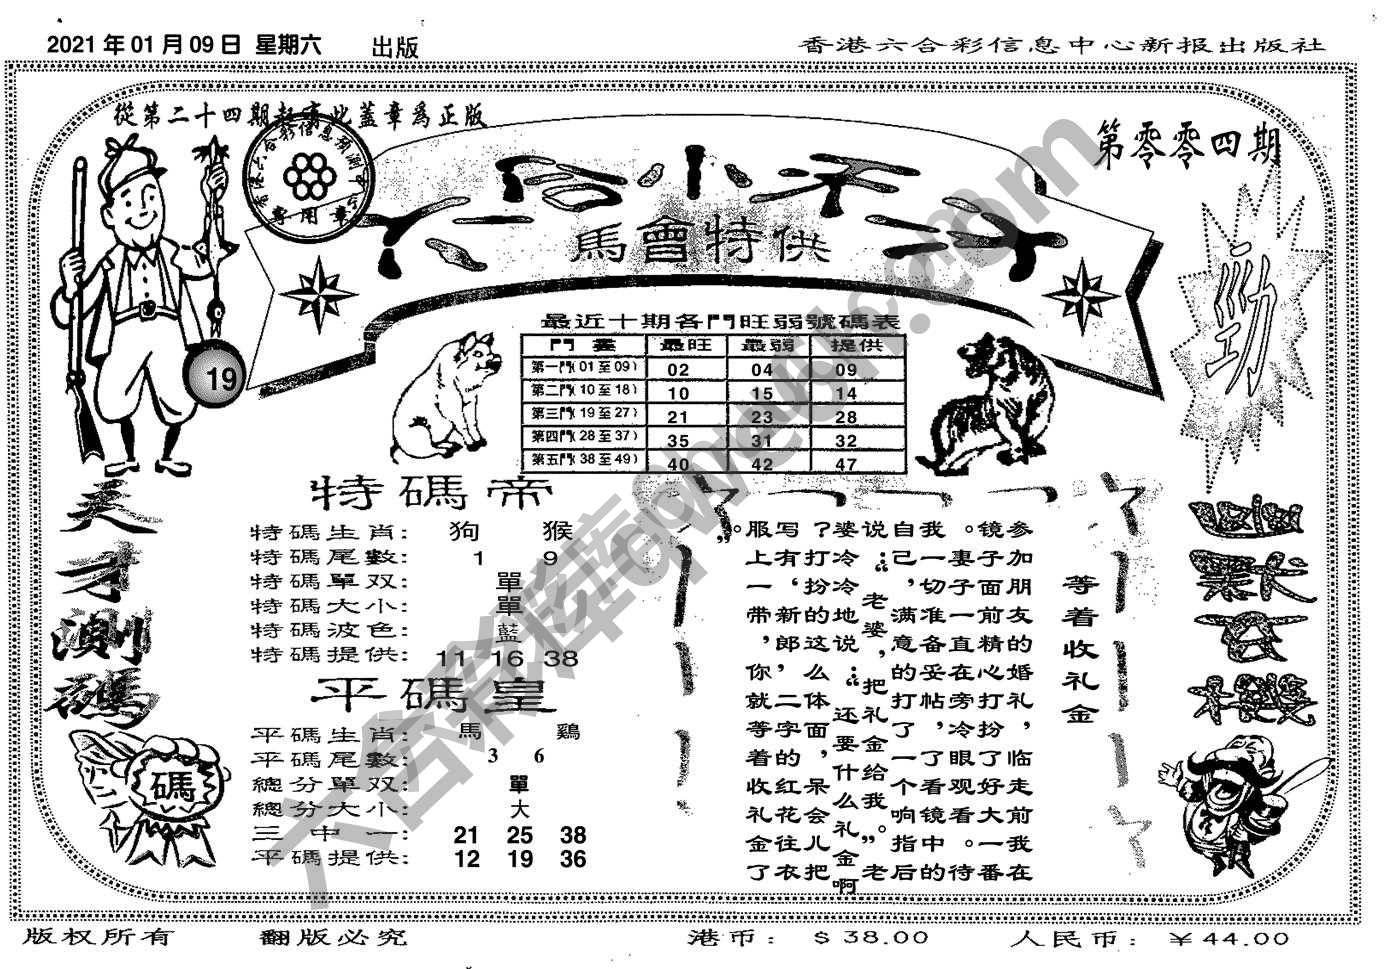 2021年01月09日 星期六 出版
香港六合彩信息中心新报出版社
從第二十四期起塞此蓋章爲正版
專用章
第零零四期
馬會特供
勁
19
最近十期各門旺弱號碼表
門 最旺 最弱 提供
第一門(01至09) 02 04 09
第二門(10至18) 10 15 14
第三門(19至27) 21 23 28
第四門(28至37) 35 31 32
第五門(38至49) 40 42 47
天才測碼
碼
特碼帝
特碼生肖: 狗 猴
特碼尾數: 1 9
特碼單双: 單
特碼大小: 單
特碼波色: 藍
特碼提供: 11 16 38
平碼皇
平碼生肖: 馬 鷄
平碼尾數: 3 6
總分單双: 單
總分大小: 大
三中一: 21 25 38
平碼提供: 12 19 36
等着收礼金
参加朋友的婚礼，临走前我在
镜子面前精心打扮了好大一番
。妻子一直在旁冷眼观看。待
我一切准备妥帖，了看镜中的
自己，满意的打了一个响指后
说：“老婆，把礼金给我。”老
婆冷冷地说：“还要什么礼金啊
？打扮的这么体面，呆会儿把
写有‘新郎’二字的红花往衣
服上一带，你就等着收礼金了
。”
版权所有 翻版必究 港币：$38.00 人民币：￥44.00